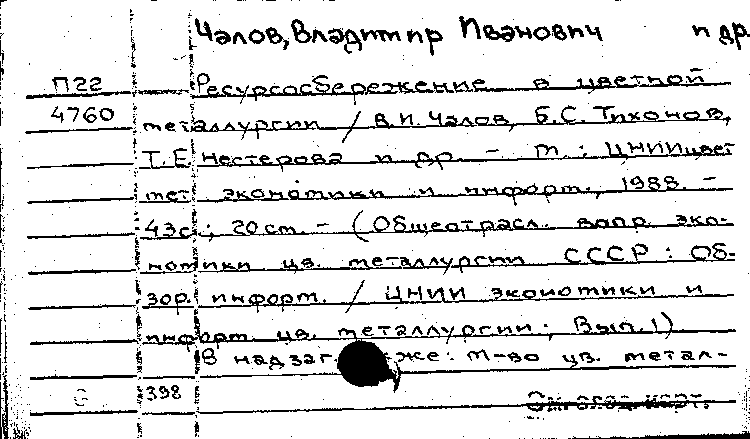 Чалов, Владимир Иванович и др.
П22 Ресурсосбережение в цветной
4760 металлургии / В.И. Чалов, Б.С. Тихонов,
Т.Е. Нестерова и др. - М. : ЦНИИцвет
мет экономики и информ., 1988. -
43 с.; 20 см. - (Общеотрасл. вопр. эко-
номики цв. металлургии СССР : Об-
зор. информ. / ЦНИИ экономики и
информ. цв. металлургии; Вып. 1)
В надзаг. же: М-во цв. метал-
398
См. след. карт.